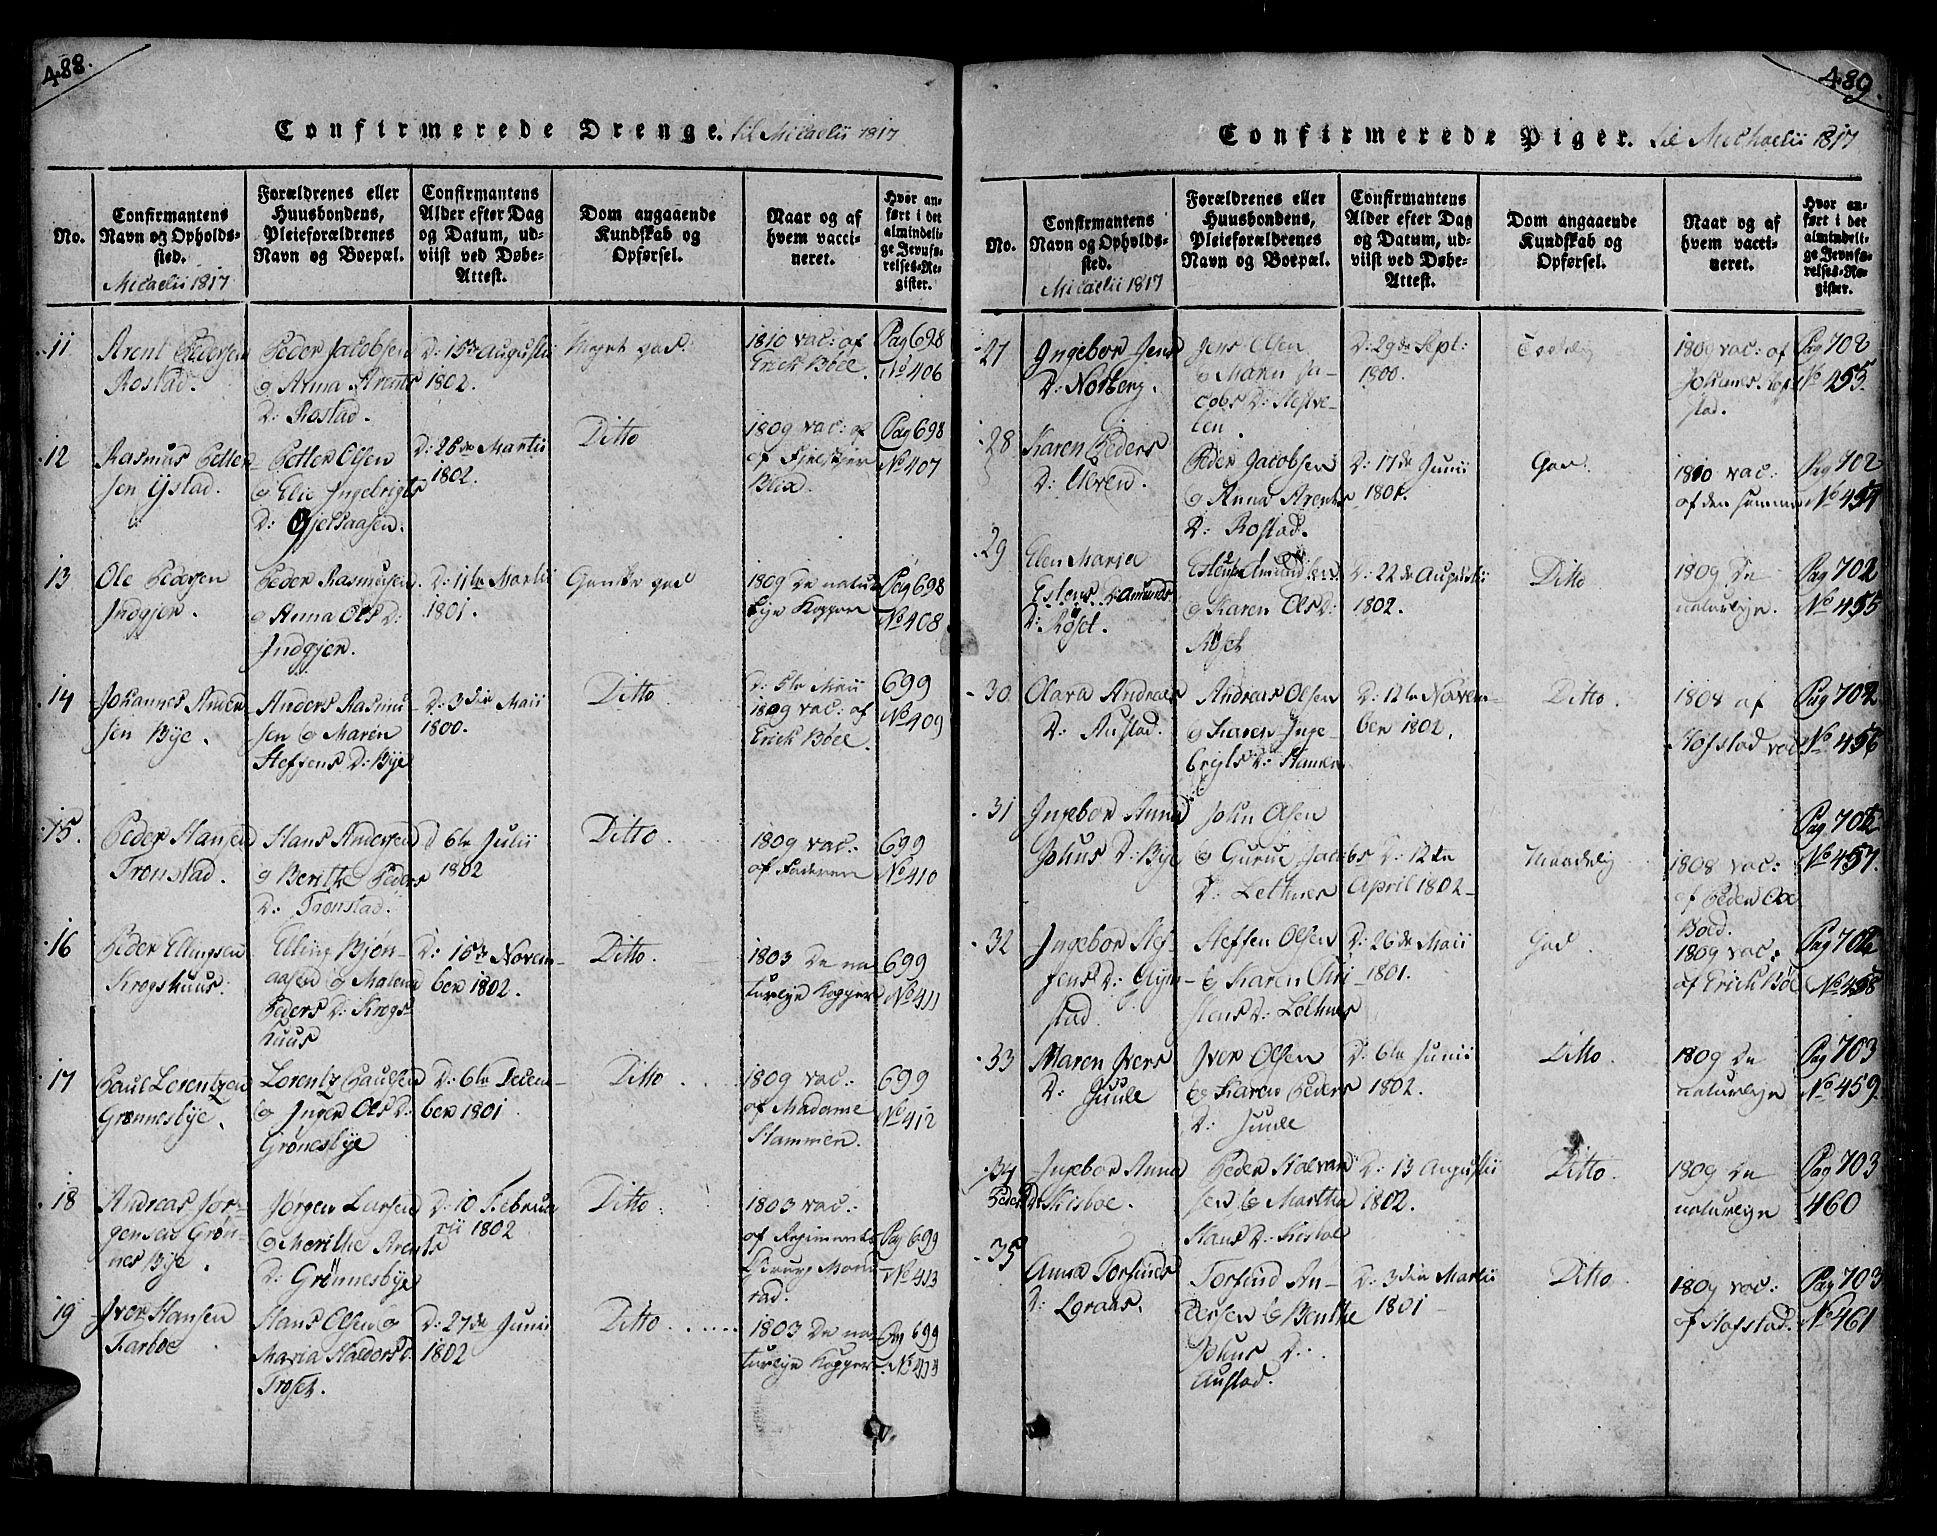 488.
Confirmerede Drenge. til Micaelii 1817
No.
Confirmantens
Navn og Opholds-
sted.
Micaelii 1817
Forældrenes eller
Huusbondens,
Pleieforældrenes
Navn og Boepæl.
Confirmantens
Alder efter Dag
og Datum, ud-
viist ved Døbe-
Attest.
Dom angaaende
Kundskab og
Opførsel.
Naar og af
hvem vacci-
neret.
Hvor an-
ført i det
almindeli-
ge Jevnfø-
relses-Re-
gister.
11
Arent Pedersen
Rostad.
Peder Jacobsen
og Anna Arents
D: Rostad.
D: 15de Augustii
1802.
Meget god.
1810 vac: af
Erick Böee.
Pag 698
No 406
12
Rasmus Petter-
sen Ystad.
Petter Olsen
og Elie Ingebrigts
D: Gjelsaasen.
D: 28de Martii
1802.
Ditto
1809 vac: af
Blix.
Pag 698
No 407
13
Ole Pedersen
Indgjer.
Peder Rasmusen
og Anna Ols D:
Indgjer.
D: 11te Martii
1801.
Ganske god
1809 De natur-
lige Kopper
Pag 698
No 408
14
Johannes Ander-
sen Bye.
Anders Rasmu-
sen og Maren
Steffens D: Bye
D: 3die Maii
1800.
Ditto
D: 5te Maii
1809 vac: af
Erick Böee.
699
No 409
15.
Peder Hansen
Tronstad.
Hans Andersen
og Berithe Peders
D: Tronstad.
D 6te Julii
1802
Ditto
1809 vac:
af Faderen
699
No 410
16
Peder Ellingsen
Krogshuus.
Elling Biön-
aasen og Malena
Peders D: Krogs
huus
D: 15de Novem-
ber 1802.
Ditto.
1803 De na
turlige Kopper
699
No 411
17
Paul Lorentzen
Grønnesbye.
Lorentz Paulsen
og Inger Ols D:
Grönesbye
D: 6te Decem-
ber 1801
Ditto
1809 vac:
af Madame
Hammen.
699
No 412
18
Andreas Jør-
gensen Grøn-
nes Bye.
Jørgen Larsen
og Merithe Arents
D: Grønnesbye
D: 10 Februa
rii 1802
Ditto
1803 vac:
af Regiments
rad.
Pag 699
No 413
19
Iver Hansen
Farboe
Hans Olsen og
Maria Haldors D.
Troset.
D: 27de Junii
1802
Ditto
1803 De na
turlige Kopper
Pag 699
No 414
489.
Confirmerede Piger. til Michaelii 1817
No.
Confirmantens
Navn og Opholds-
sted.
Micaelii 1817
Forældrenes eller
Huusbondens,
Pleieforældrenes
Navn og Boepæl.
Confirmantens
Alder efter Dag
og Datum, ud-
viist ved Døbe-
Attest.
Dom angaaende
Kundskab og
Opførsel.
Naar og af
hvem vacci-
neret.
Hvor an-
ført i det
almindeli-
ge Jevnfø-
relses-Re-
gister.
27
Ingebor Jens
D: Norberg.
Jens Olsen
og Maren Ja-
cobs D: Hestve-
len.
D: 29de Sept:
1800.
1809 vac: af
stad.
Pag 702
No 453
28
Karen Peders
D: Ulven.
Peder Jacobsen
og Anna Arents
D: Rostad.
D: 17de Junii
1801.
God.
1810 vac:
af den samme
Pag 702
No 454
29
Elen Maria
Estens Amunds
D: Röset.
Esten Amundsen
og Karen Ols D:
Röset
D: 22de Augustii
1802.
Ditto
1809 De
naturlige.
Pag 702
No 455
30
Olava Andreas
D: Austad.
Andreas Olsen
og Karen Inge-
brigts D: Hanem
D: 12te Novem-
ber 1802.
Ditto.
1808 af
Hofstad vac
Pag 702
No 456
31
Ingebor Anna
Johns D: Bye
John Olsen
og Gurue Jacobs
D: Lethnes
D: 12te
April 1802
Maadelig
1808 vac:
af Peder Oxe
Bold.
Pag 702
No 457
32
Ingebor Stef-
fens D: Glym-
stad
Steffen Olsen
og Karen Chri-
stens D: Lethnes
D: 26de Maii
1801.
God.
1809 vac:
af Erick Böe
Pag 702
No 458
33
Maren Ivers
D: Juule
Iver Olsen
og Karen Peders
D: Juule
D: 6te Junii
1802.
Ditto.
1809 De
naturlige
Pag 703
No 459
34
Ingebor Anna
Peders D: Kisboe.
Peder Halvor-
sen og Martha
Hans D: Kisboe
D: 13 Augustii
1802.
Ditto.
1809 De
naturlige
Pag 703
460
35
Anna Torfines
D: Lgraas.
Torfind An-
dersen og Benthe
Johns D:
Austad.
D: 3die Martii
1801
Ditto
1809 vac:
af Hofstad.
Pag 703
No 461